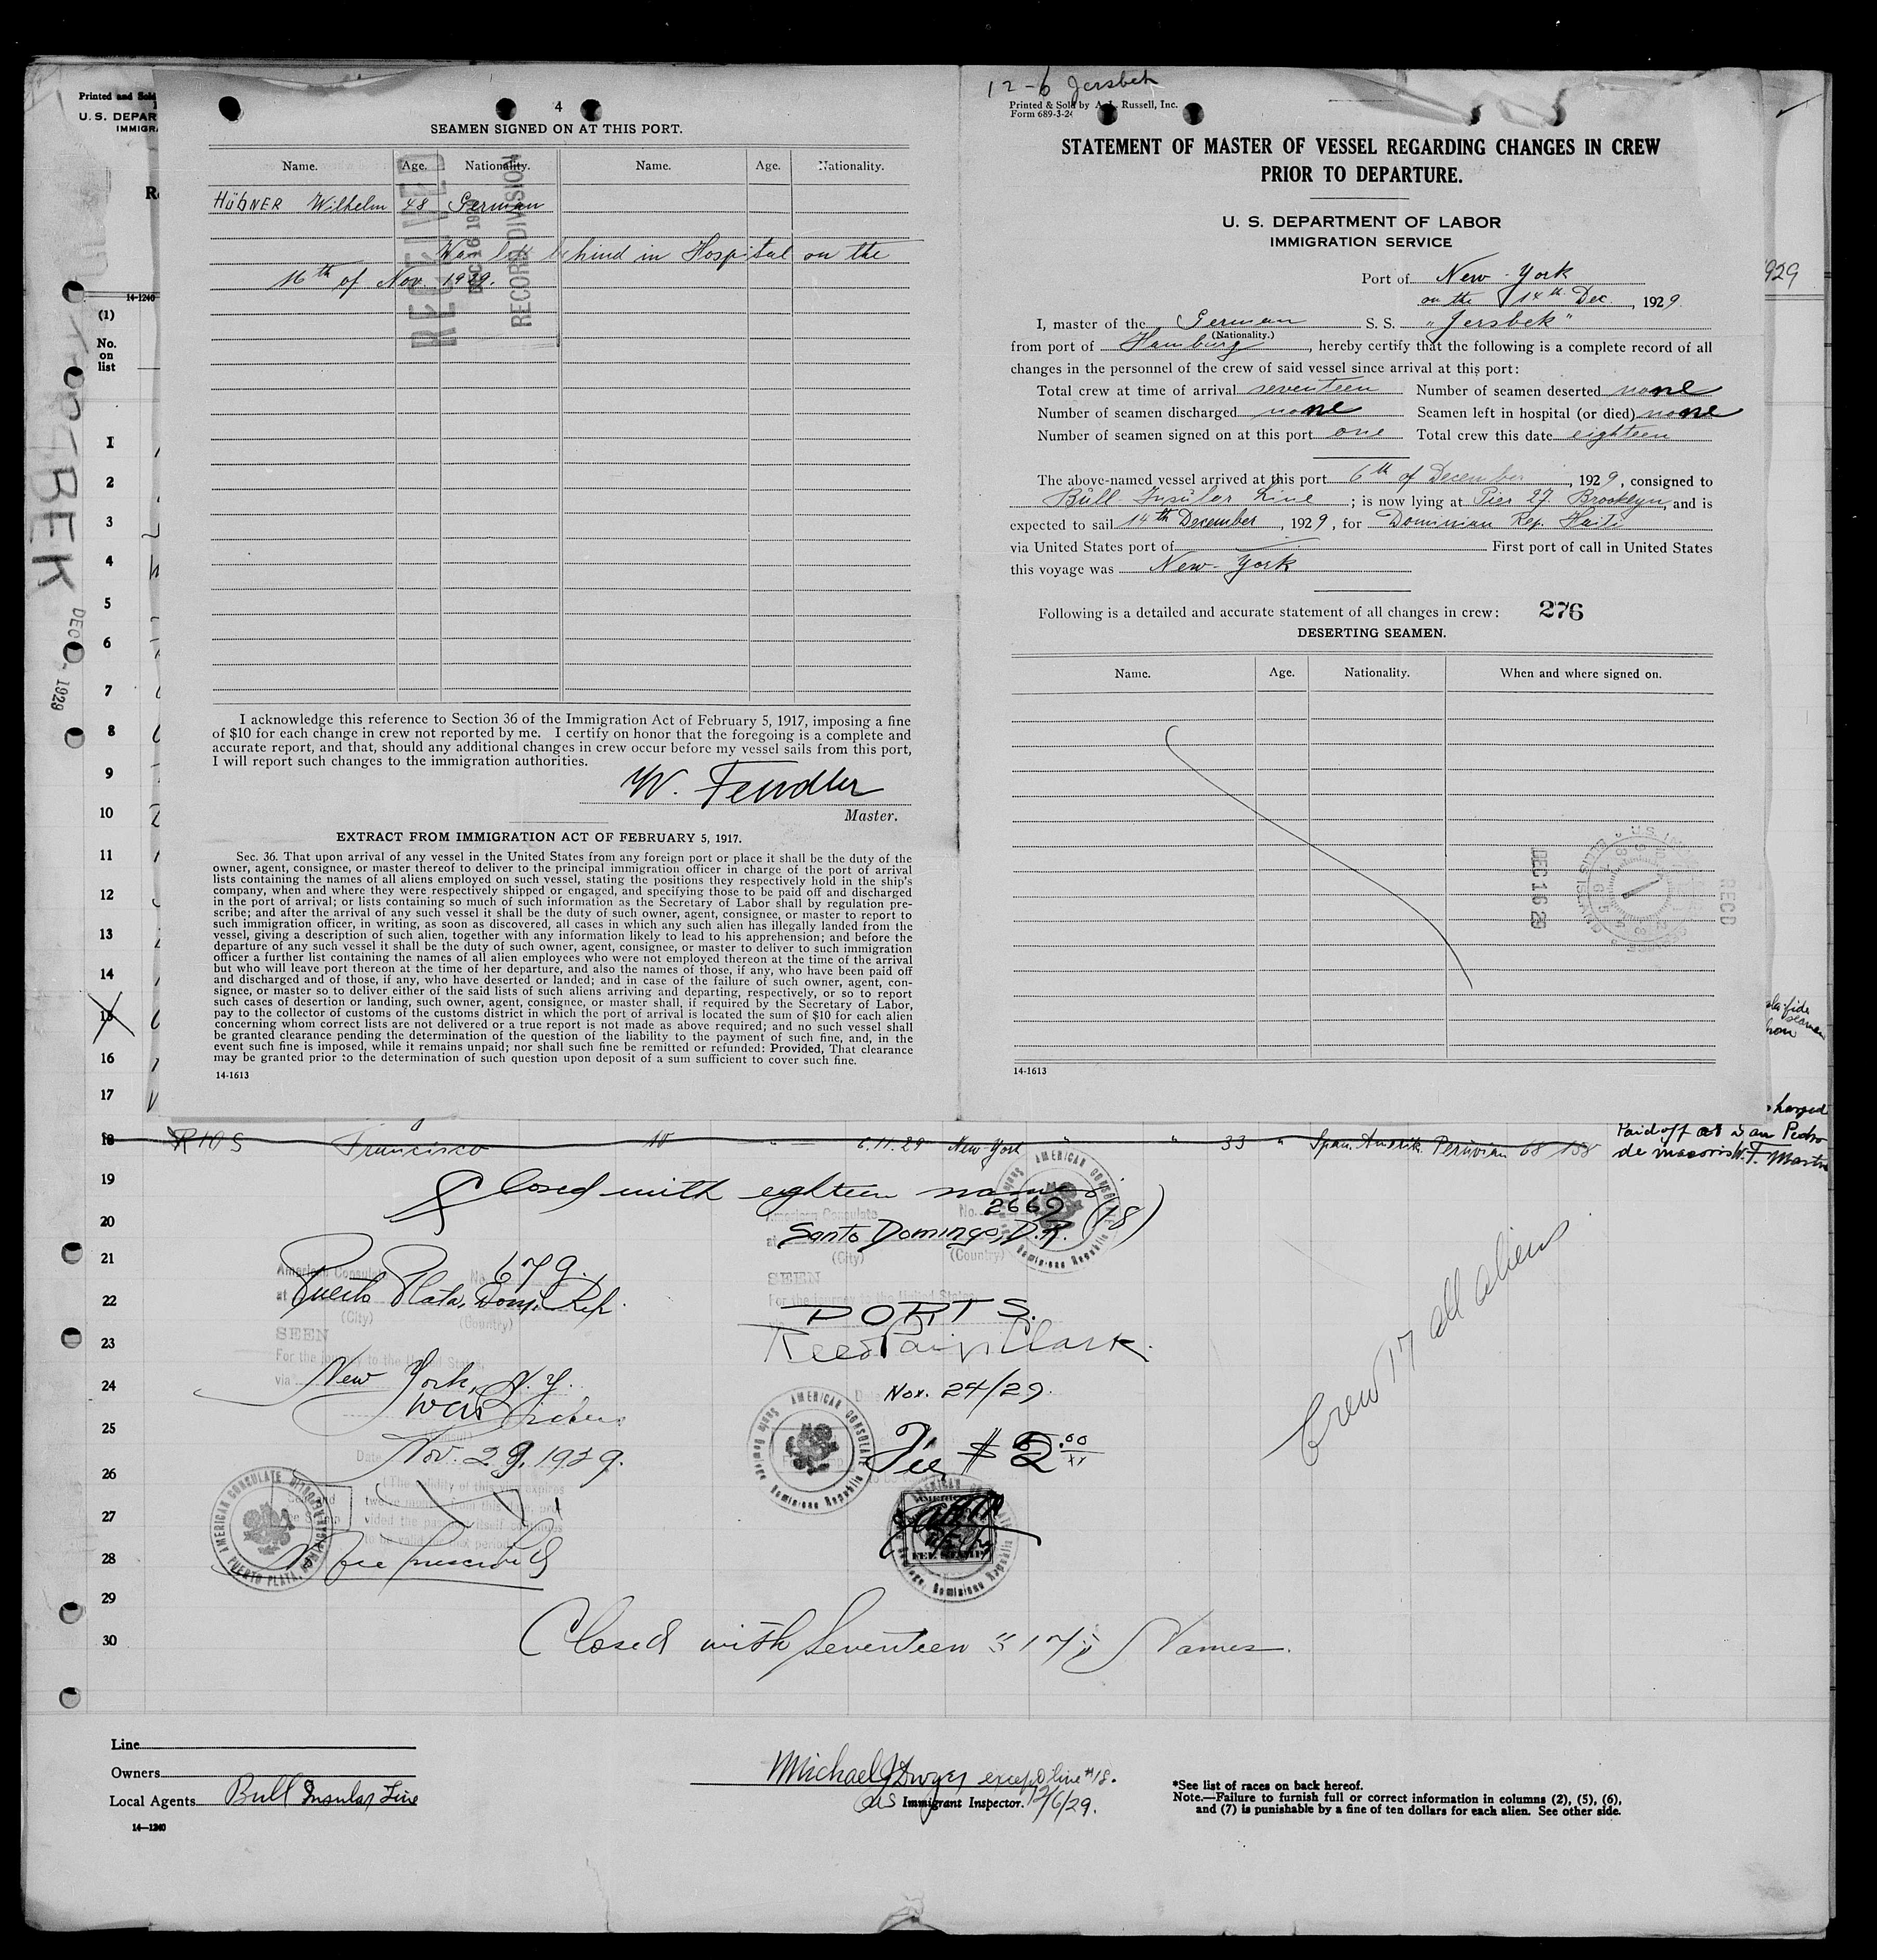 Printed and Sold
U. S. DEPAR
IMMIGRA
14-1240
(1)
No.
on
list
1
2
3
4
5
6
7
8
9
10
11
12
13
14
15
16
17
BEK
DEC 1929
4
SEAMEN SIGNED ON AT THIS PORT.
Name. Age. Nationality. Name. Age. Nationality.
HübNER Wilhelm 48 German
Was left behind in Hospital on the
16th of Nov. 1929.
RECEIVED
DEC 16 192
RECORD DIVISION
I acknowledge this reference to Section 36 of the Immigration Act of February 5, 1917, imposing a fine
of $10 for each change in crew not reported by me. I certify on honor that the foregoing is a complete and
accurate report, and that, should any additional changes in crew occur before my vessel sails from this port,
I will report such changes to the immigration authorities.
W. Fendler
Master.
EXTRACT FROM IMMIGRATION ACT OF FEBRUARY 5, 1917.
Sec. 36. That upon arrival of any vessel in the United States from any foreign port or place it shall be the duty of the
owner, agent, consignee, or master thereof to deliver to the principal immigration officer in charge of the port of arrival
lists containing the names of all aliens employed on such vessel, stating the positions they respectively hold in the ship's
company, when and where they were respectively shipped or engaged, and specifying those to be paid off and discharged
in the port of arrival; or lists containing so much of such information as the Secretary of Labor shall by regulation pre-
scribe; and after the arrival of any such vessel it shall be the duty of such owner, agent, consignee, or master to report to
such immigration officer, in writing, as soon as discovered, all cases in which any such alien has illegally landed from the
vessel, giving a description of such alien, together with any information likely to lead to his apprehension; and before the
departure of any such vessel it shall be the duty of such owner, agent, consignee, or master to deliver to such immigration
officer a further list containing the names of all alien employees who were not employed thereon at the time of the arrival
but who will leave port thereon at the time of her departure, and also the names of those, if any, who have been paid off
and discharged and of those, if any, who have deserted or landed; and in case of the failure of such owner, agent, con-
signee, or master so to deliver either of the said lists of such aliens arriving and departing, respectively, or so to report
such cases of desertion or landing, such owner, agent, consignee, or master shall, if required by the Secretary of Labor,
pay to the collector of customs of the customs district in which the port of arrival is located the sum of $10 for each alien
concerning whom correct lists are not delivered or a true report is not made as above required; and no such vessel shall
be granted clearance pending the determination of the question of the liability to the payment of such fine, and, in the
event such fine is imposed, while it remains unpaid; nor shall such fine be remitted or refunded: Provided, That clearance
may be granted prior to the determination of such question upon deposit of a sum sufficient to cover such fine.
14-1613
12-6 Jersbek
Printed & Sold by A. L. Russell, Inc.
Form 689-3-24
STATEMENT OF MASTER OF VESSEL REGARDING CHANGES IN CREW
PRIOR TO DEPARTURE.
U. S. DEPARTMENT OF LABOR
IMMIGRATION SERVICE
Port of New-York
on the 14th Dec., 1929
929
I, master of the German S. S. "Jersbek"
(Nationality.)
from port of Hamburg, hereby certify that the following is a complete record of all
changes in the personnel of the crew of said vessel since arrival at this port:
Total crew at time of arrival seventeen Number of seamen deserted none
Number of seamen discharged none Seamen left in hospital (or died) none
Number of seamen signed on at this port one Total crew this date eighteen
The above-named vessel arrived at this port 6th of December, 1929, consigned to
Bull Insular Line; is now lying at Pier 27. Brooklyn, and is
expected to sail 14th December, 1929, for Dominian Rep. Haiti
via United States port of First port of call in United States
this voyage was New-York
Following is a detailed and accurate statement of all changes in crew: 276
DESERTING SEAMEN.
Name. Age. Nationality. When and where signed on.
DEC 16 29
RECD
14-1613
18 RIOS Francisco 6.11.29 New-York " " 33 " Span. Amerik. Peruvian 68 158
Paid off at San Pedro
de macoris W. F. Master
19
20
21
22
23
24
25
26
27
28
29
30
Closed with eighteen names (18)
American Consulate No. 2669
at Santo Domingo, D.R.
(City) (Country)
SEEN
For the journey to the United States
PORTS.
Reed Paige Clark
Nov. 24/29.
AMERICAN CONSULATE
Dominican Republic
Fee $2.00
American Consulate No. 679
at Puerto Plata, Dom. Rep.
(City) (Country)
SEEN
For the journey to the United States,
via New York, N.Y.
Date Nov. 29, 1929.
AMERICAN CONSULATE
PUERTO PLATA,
No fee prescribed
Crew 17 all aliens
Closed with Seventeen "17" Names.
Line
Owners
Local Agents Bull Insular Line
14-1240
Michael J Dwyer except line #18.
Immigrant Inspector. 12/6/29.
*See list of races on back hereof.
Note.—Failure to furnish full or correct information in columns (2), (5), (6),
and (7) is punishable by a fine of ten dollars for each alien. See other side.